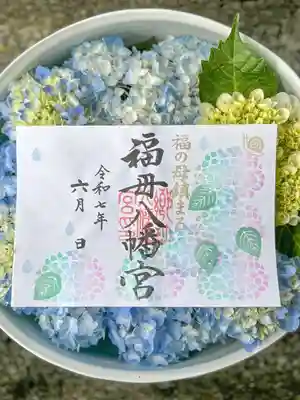 福の母頃まろ
福母八幡宮
令和七年
六月 日